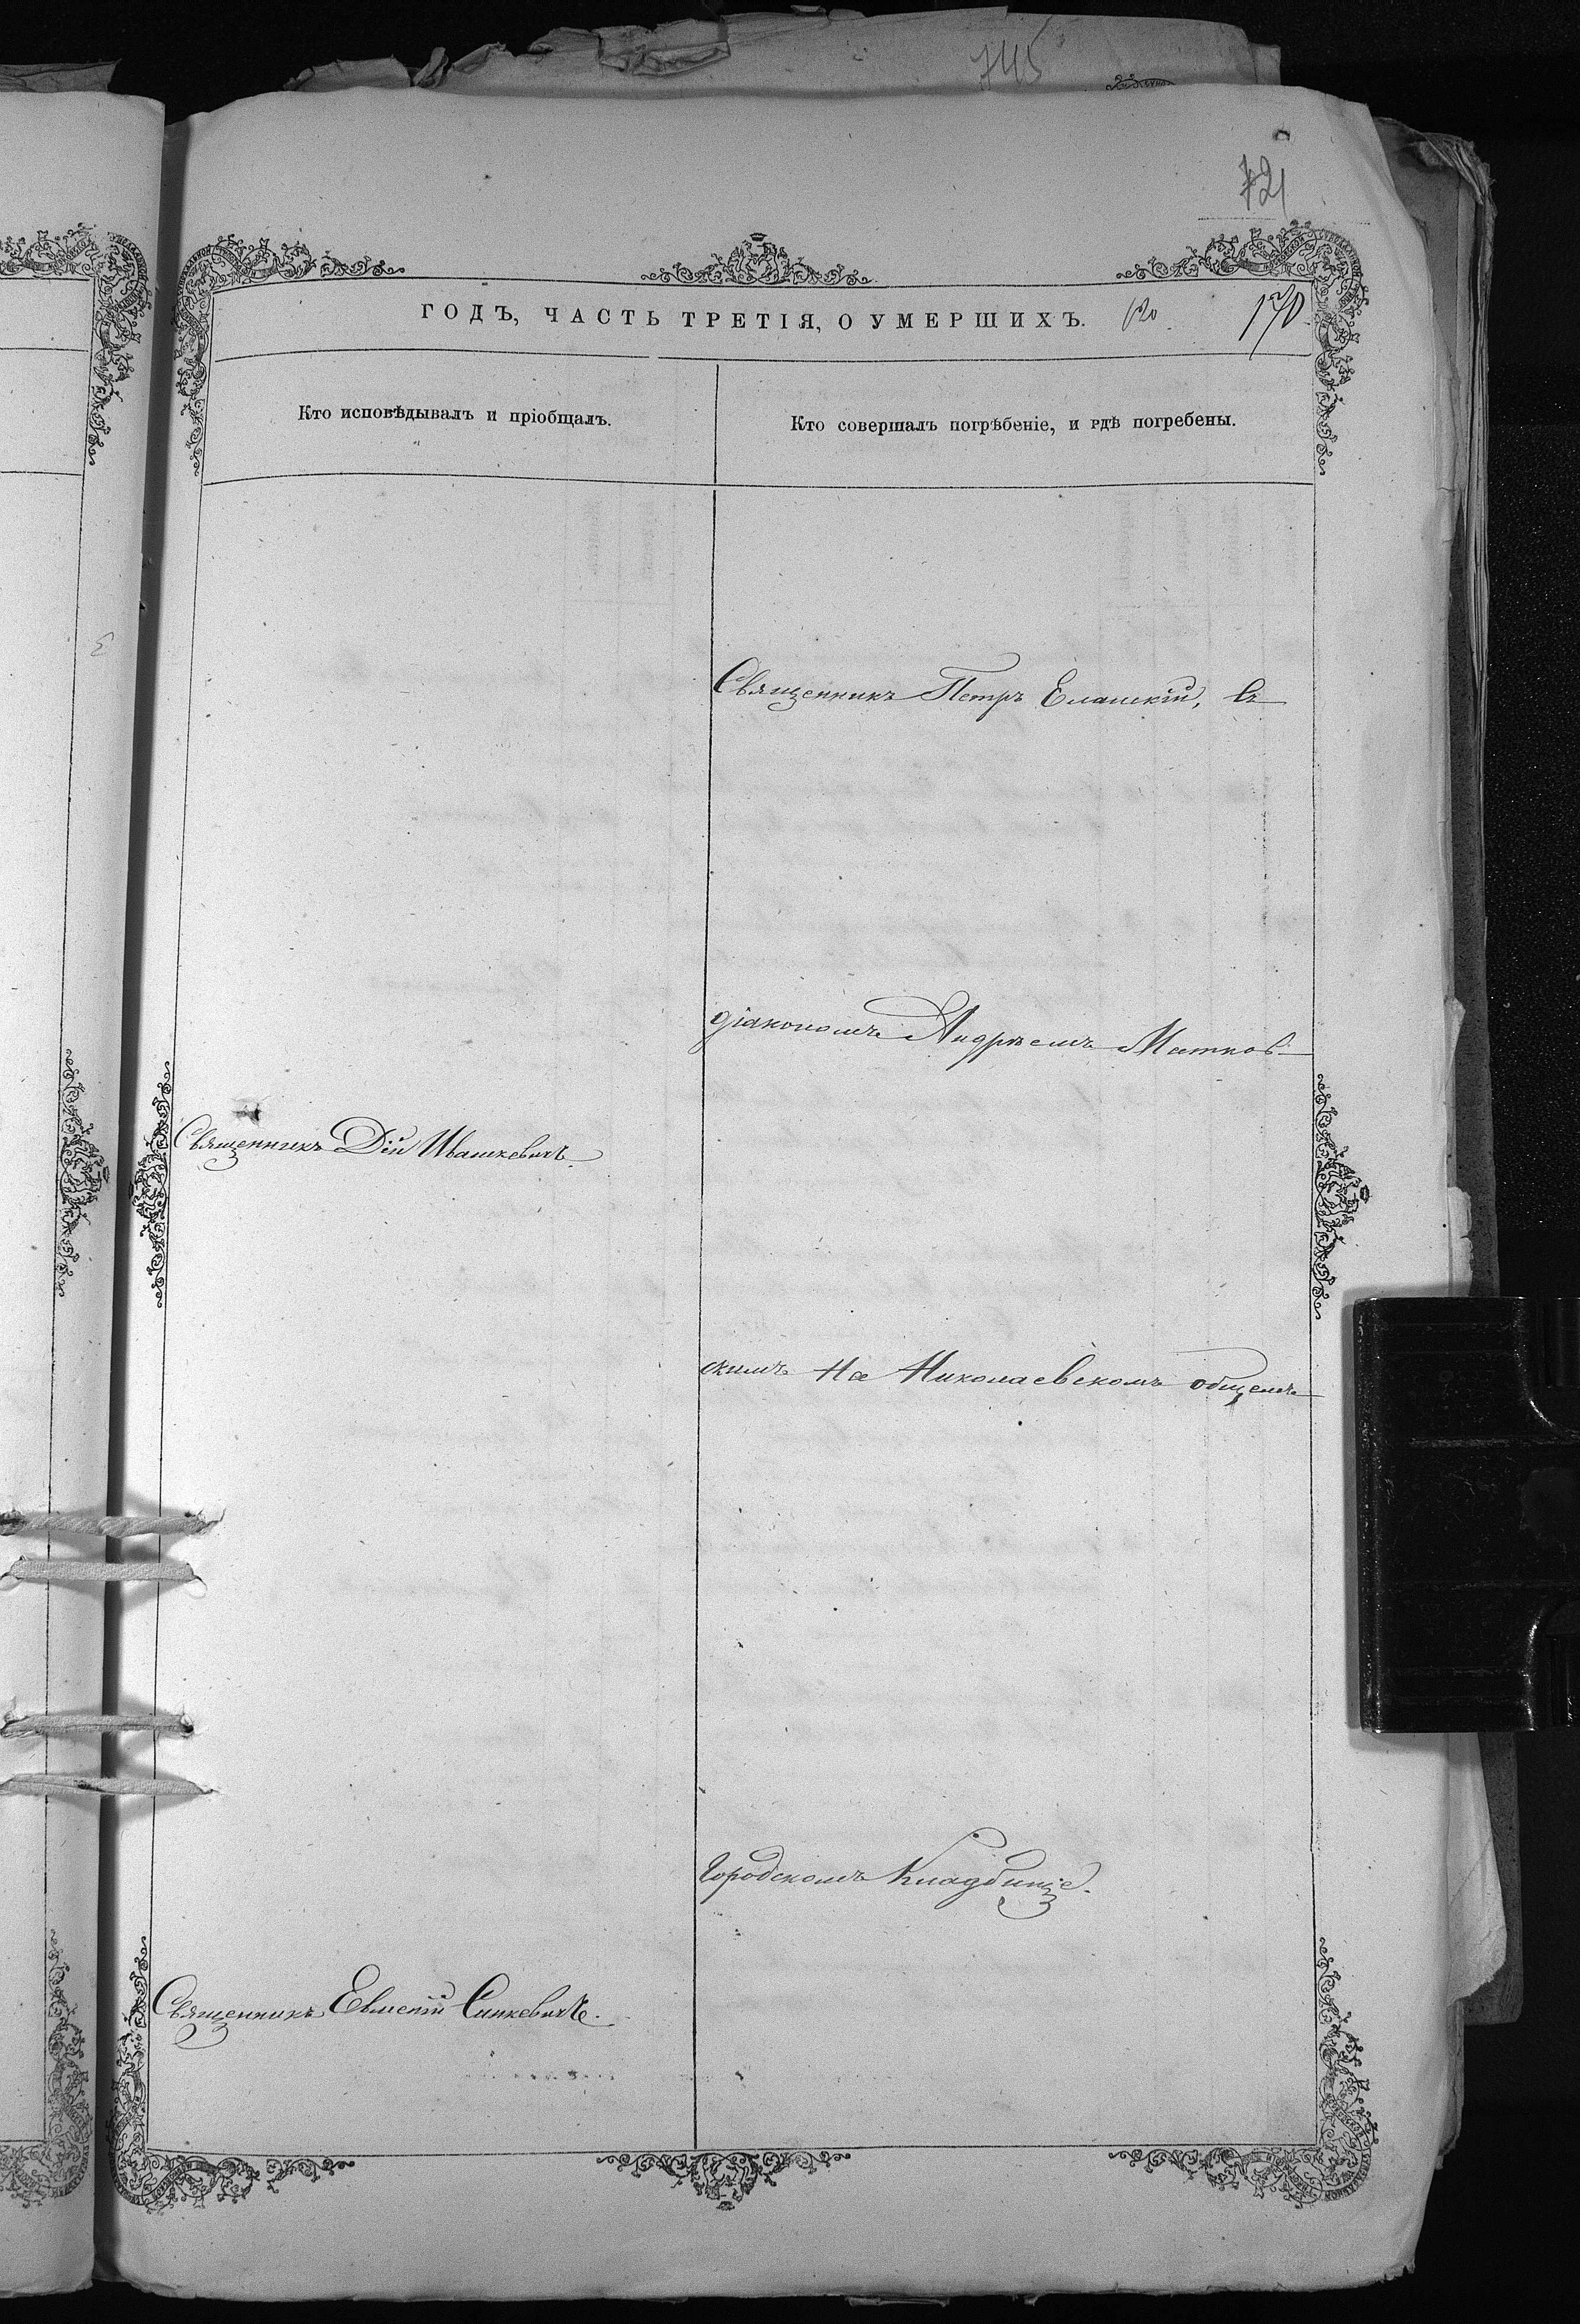 745
721
ГОДЪ, ЧАСТЬ ТРЕТІЯ, О УМЕРШИХЪ.
170.
Кто исповѣдывалъ и пріобщалъ.
Кто совершалъ погрѣбеніе, и гдѣ погребены.
Священникъ Петръ Еланскій, съ
діакономъ Андреемъ Матков-
Священникъ Дій Ивашкевичъ.
скимъ На Николаевскомъ общемъ
Городскомъ Кладбищѣ.
Священникъ Евменій Синкевичъ.